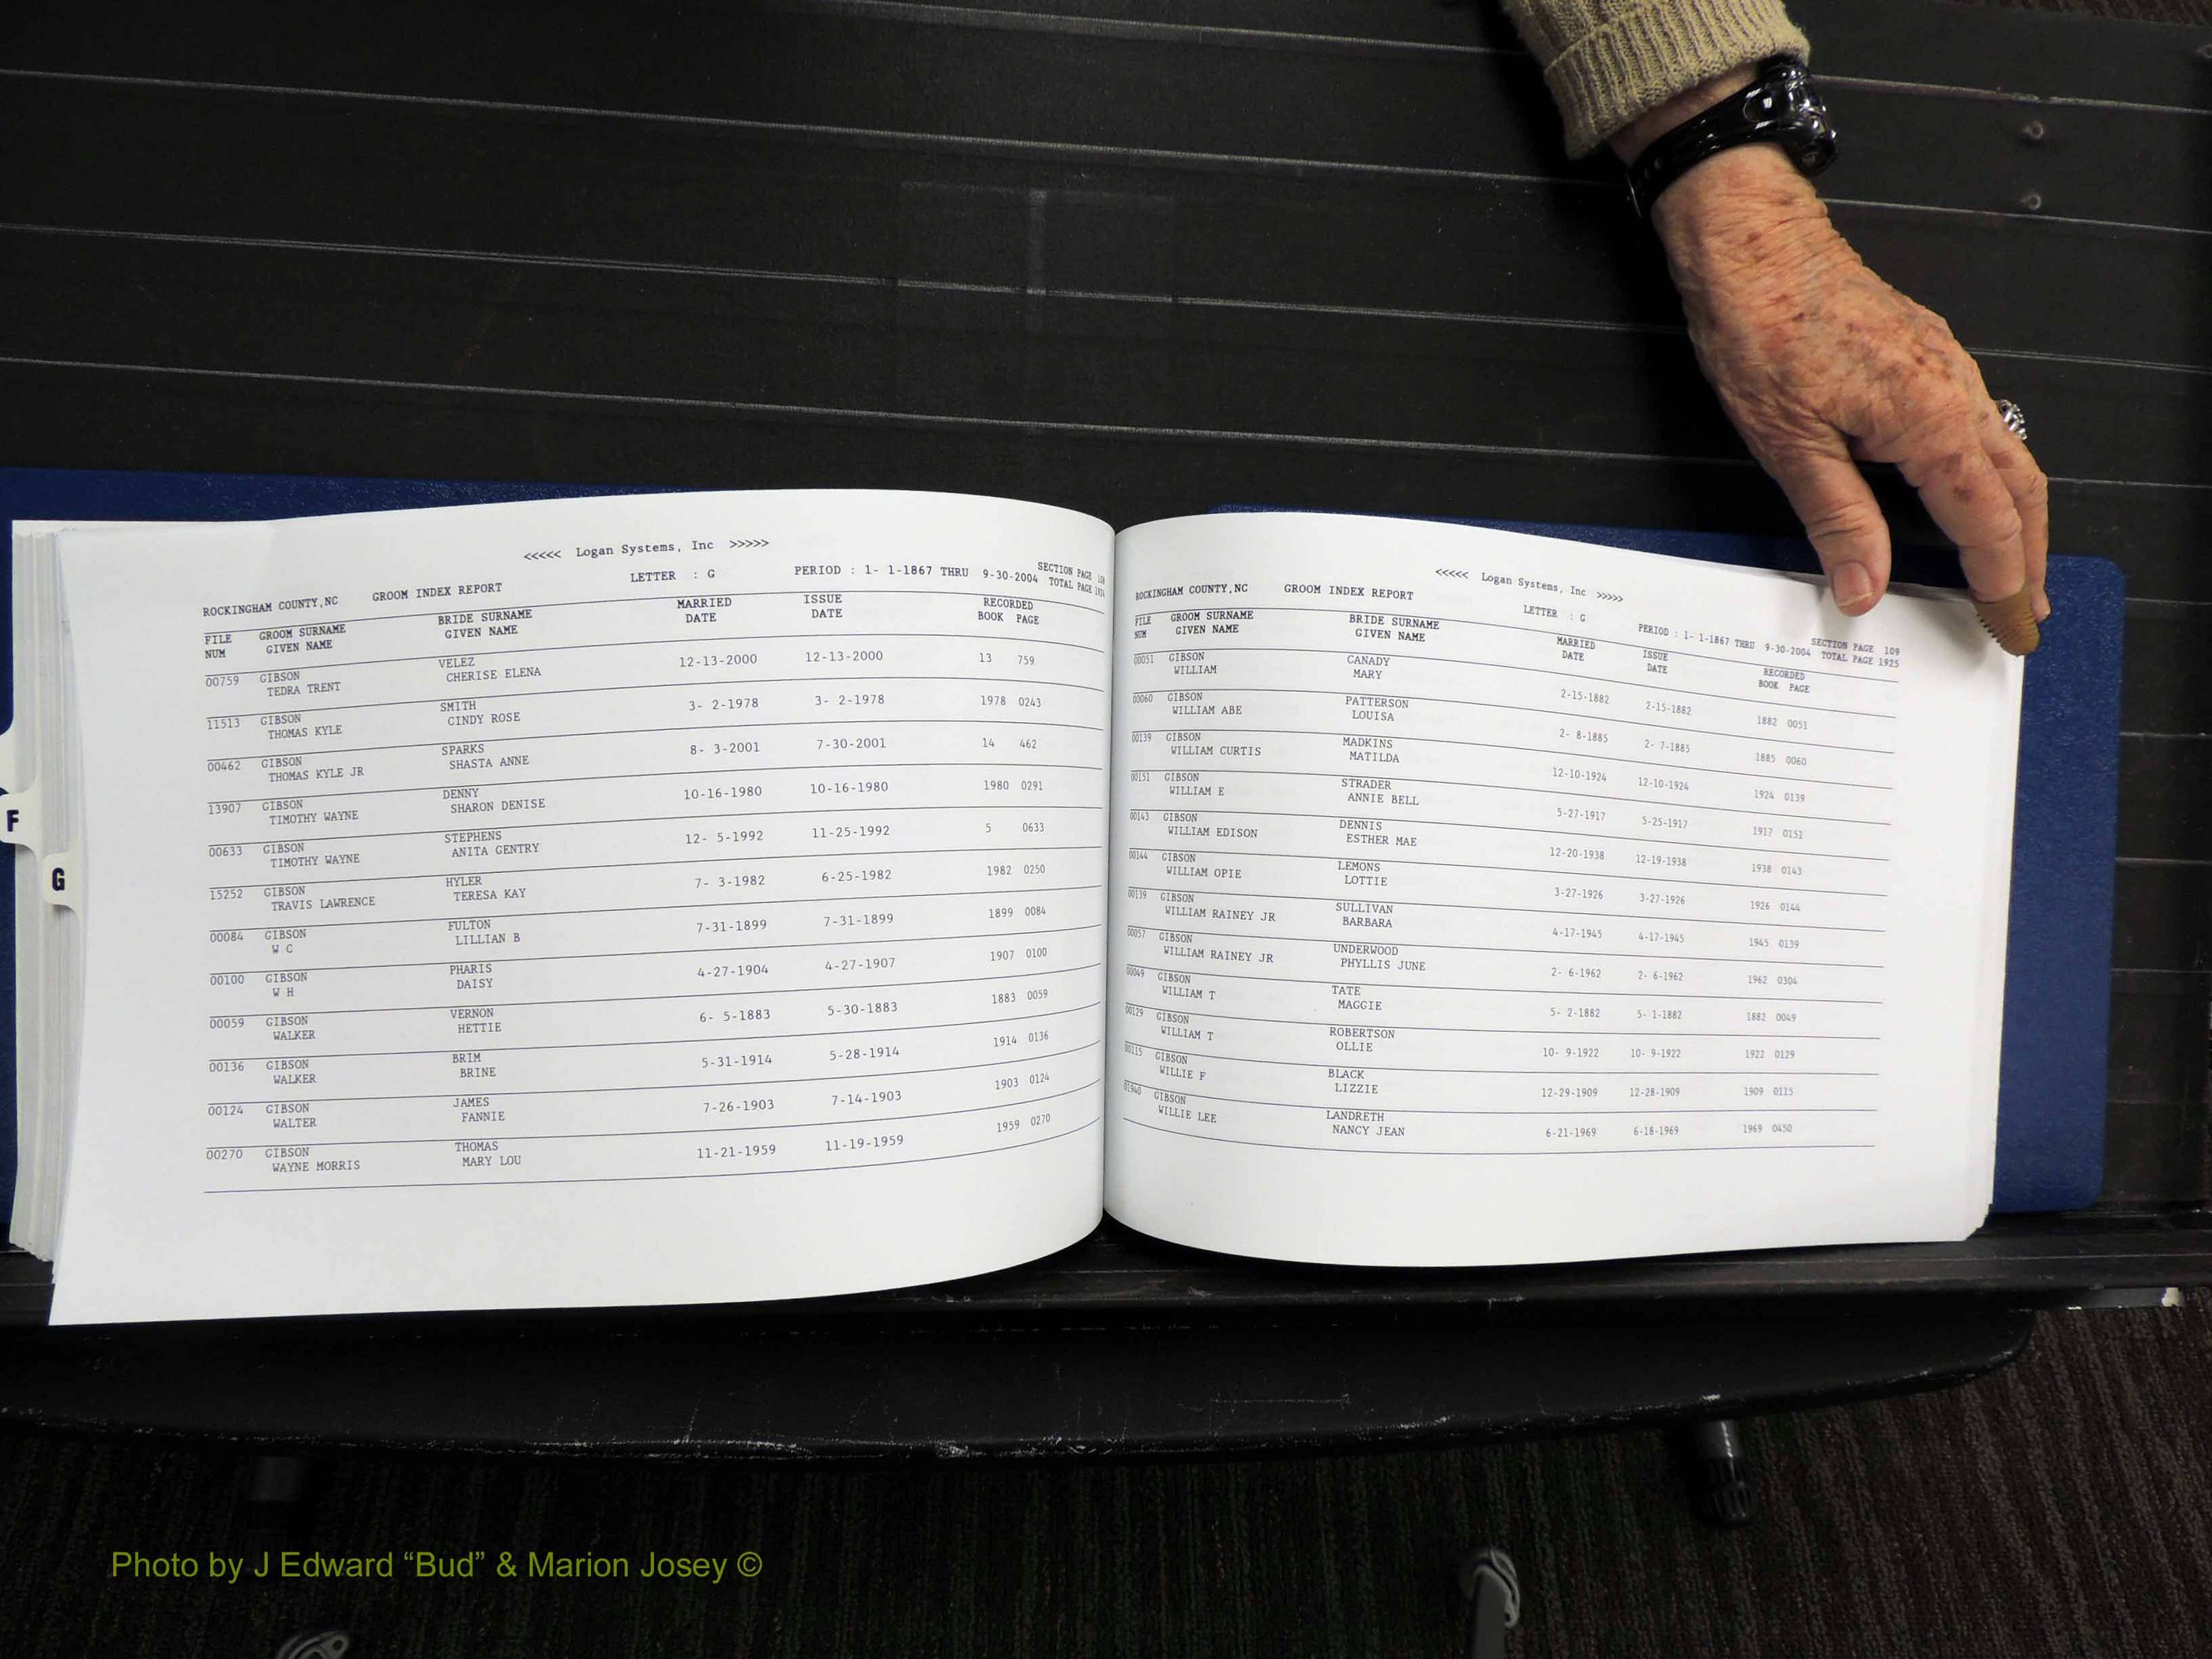 <<<<< Logan Systems, Inc >>>>>
ROCKINGHAM COUNTY,NC GROOM INDEX REPORT LETTER : G PERIOD : 1- 1-1867 THRU 9-30-2004 SECTION PAGE
TOTAL PAGE
FILE GROOM SURNAME BRIDE SURNAME MARRIED ISSUE RECORDED
NUM GIVEN NAME GIVEN NAME DATE DATE BOOK PAGE
00759 GIBSON VELEZ 12-13-2000 12-13-2000 13 759
TEDRA TRENT CHERISE ELENA
11513 GIBSON SMITH 3- 2-1978 3- 2-1978 1978 0243
THOMAS KYLE CINDY ROSE
00462 GIBSON SPARKS 8- 3-2001 7-30-2001 14 462
THOMAS KYLE JR SHASTA ANNE
13907 GIBSON DENNY 10-16-1980 10-16-1980 1980 0291
TIMOTHY WAYNE SHARON DENISE
00633 GIBSON STEPHENS 12- 5-1992 11-25-1992 5 0633
TIMOTHY WAYNE ANITA GENTRY
15252 GIBSON HYLER 7- 3-1982 6-25-1982 1982 0250
TRAVIS LAWRENCE TERESA KAY
00084 GIBSON FULTON 7-31-1899 7-31-1899 1899 0084
W C LILLIAN B
00100 GIBSON PHARIS 4-27-1904 4-27-1907 1907 0100
W H DAISY
00059 GIBSON VERNON 6- 5-1883 5-30-1883 1883 0059
WALKER HETTIE
00136 GIBSON BRIM 5-31-1914 5-28-1914 1914 0136
WALKER BRINE
00124 GIBSON JAMES 7-26-1903 7-14-1903 1903 0124
WALTER FANNIE
00270 GIBSON THOMAS 11-21-1959 11-19-1959 1959 0270
WAYNE MORRIS MARY LOU
F
G
<<<<< Logan Systems, Inc >>>>>
ROCKINGHAM COUNTY,NC GROOM INDEX REPORT LETTER : G PERIOD : 1- 1-1867 THRU 9-30-2004 SECTION PAGE 109
TOTAL PAGE 1925
FILE GROOM SURNAME BRIDE SURNAME MARRIED ISSUE RECORDED
NUM GIVEN NAME GIVEN NAME DATE DATE BOOK PAGE
00051 GIBSON CANADY 2-15-1882 2-15-1882 1882 0051
WILLIAM MARY
00060 GIBSON PATTERSON 2- 8-1885 2- 7-1885 1885 0060
WILLIAM ABE LOUISA
00139 GIBSON MADKINS 12-10-1924 12-10-1924 1924 0139
WILLIAM CURTIS MATILDA
00151 GIBSON STRADER 5-27-1917 5-25-1917 1917 0151
WILLIAM E ANNIE BELL
00143 GIBSON DENNIS 12-20-1938 12-19-1938 1938 0143
WILLIAM EDISON ESTHER MAE
00144 GIBSON LEMONS 3-27-1926 3-27-1926 1926 0144
WILLIAM OPIE LOTTIE
00139 GIBSON SULLIVAN 4-17-1945 4-17-1945 1945 0139
WILLIAM RAINEY JR BARBARA
00057 GIBSON UNDERWOOD 2- 6-1962 2- 6-1962 1962 0304
WILLIAM RAINEY JR PHYLLIS JUNE
00049 GIBSON TATE 5- 2-1882 5- 1-1882 1882 0049
WILLIAM T MAGGIE
00129 GIBSON ROBERTSON 10- 9-1922 10- 9-1922 1922 0129
WILLIAM T OLLIE
00115 GIBSON BLACK 12-29-1909 12-28-1909 1909 0115
WILLIE F LIZZIE
01940 GIBSON LANDRETH 6-21-1969 6-18-1969 1969 0450
WILLIE LEE NANCY JEAN
Photo by J Edward “Bud” & Marion Josey ©